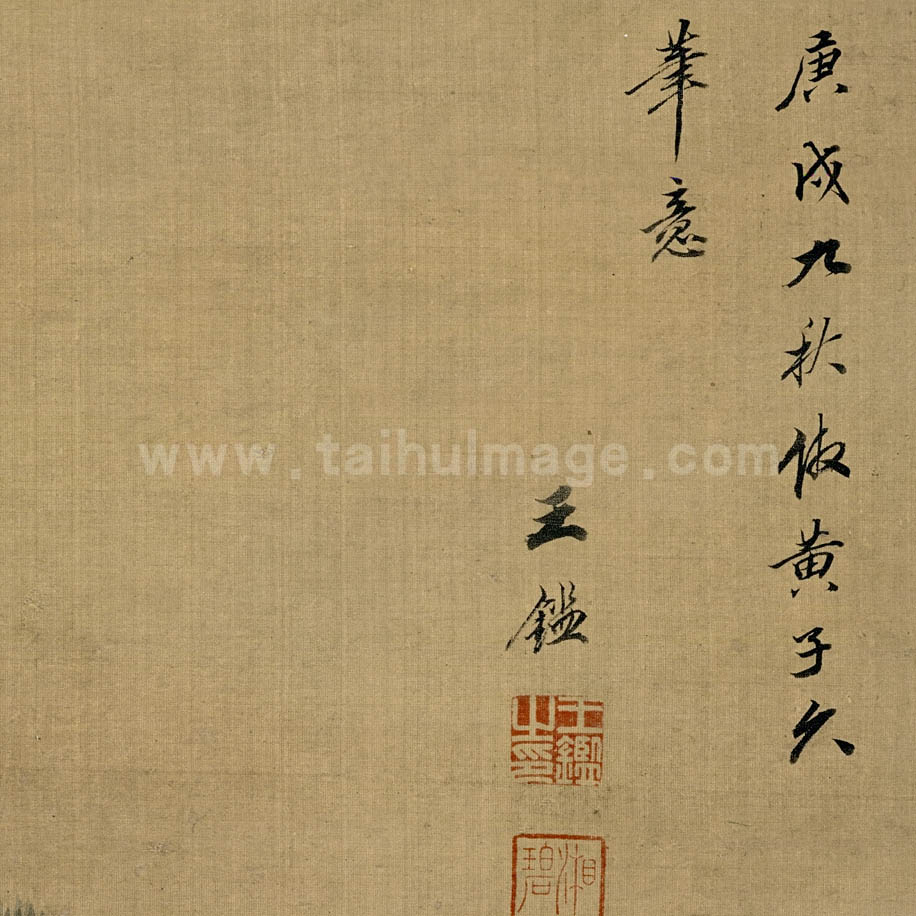 庚戌九秋倣黃子久
筆意
王鑑
王鑑之印
湘碧
www.taihuImage.com